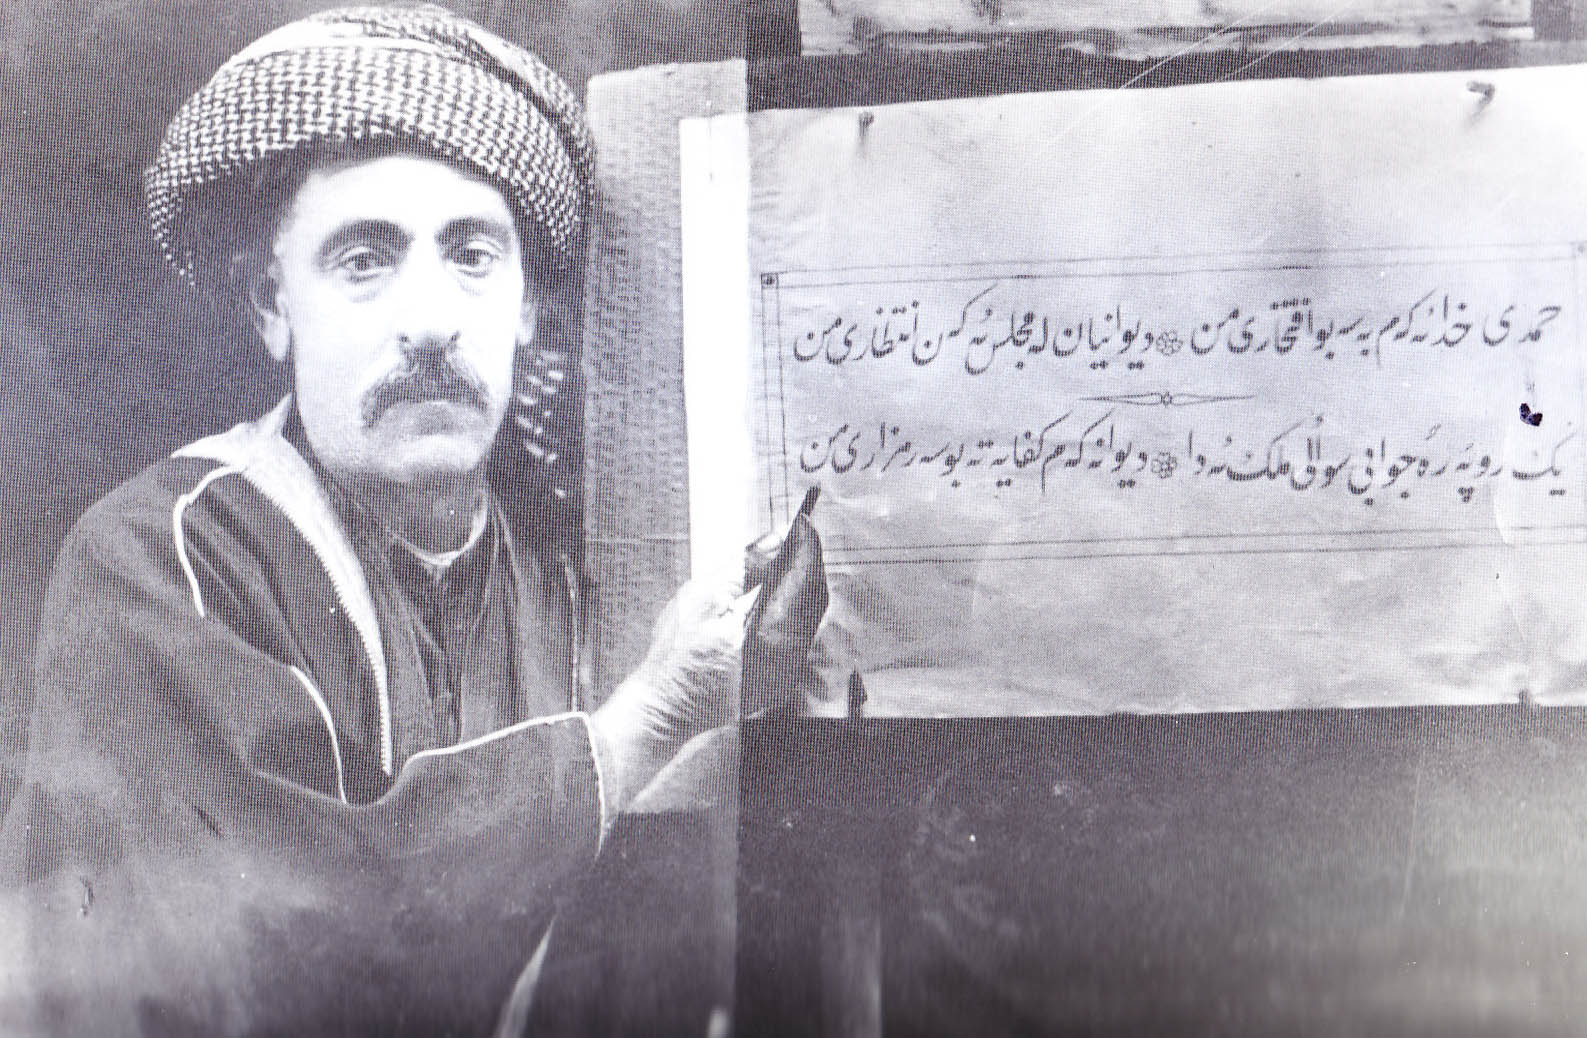 حمدی خدا ئه کەم به سه بو افتخاری من ❁ دیوانیان له مجلس ئه کەن انتظاری من
یک روپه ره جوابی سوالی ملک ئه دا ❁ دیوانه کەم کفایه ته بو سه ر مزاری من